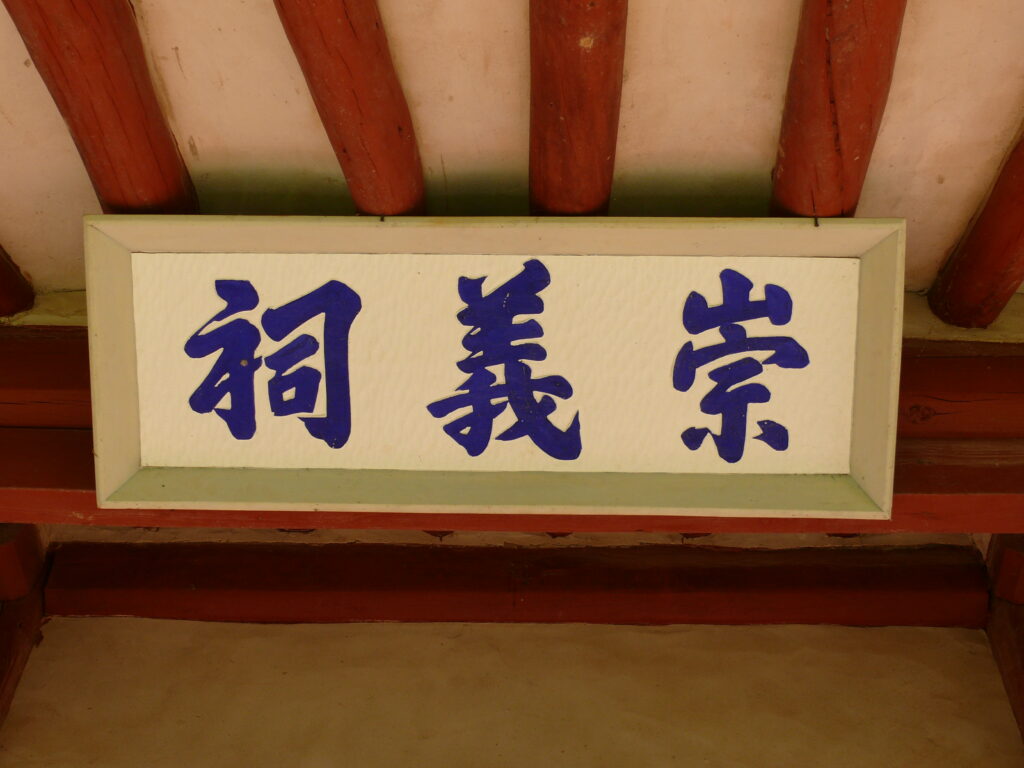 崇義祠